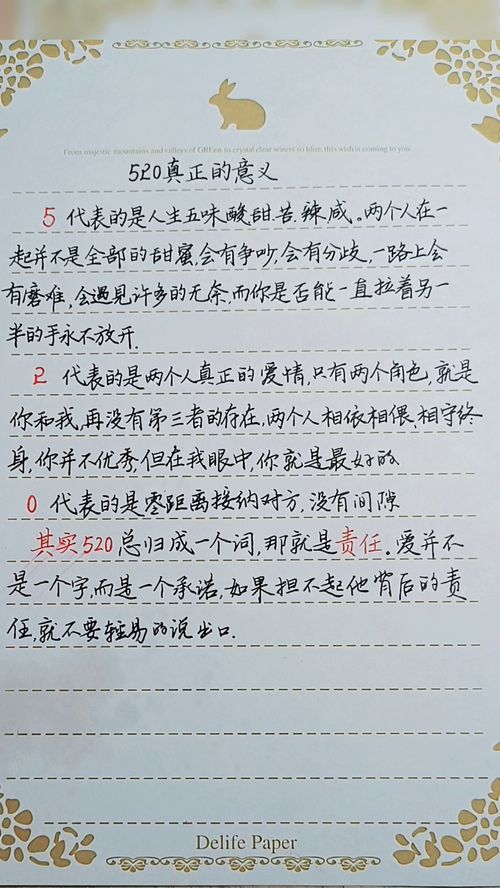 From majestic mountains and valleys of GREen to crystal clear waters so blue, this wish is coming to you.
520真正的意义
5 代表的是人生五味酸甜.苦.辣,咸。两个人在一
起并不是全部的甜蜜,会有争吵,会有分歧,一路上会
有磨难,会遇见许多的无奈,而你是否能一直拉着另一
半的手永不放开.
2 代表的是两个人真正的爱情,只有两个角色,就是
你和我,再没有第三者的存在,两个人相依相偎.相守终
身,你并不优秀,但在我眼中,你就是最好的
0 代表的是零距离接纳对方,没有间隙
其实520总归成一个词,那就是责任。爱并不
是一个字,而是一个承诺,如果担不起他背后的责
任,就不要轻易的说出口.
Delife Paper